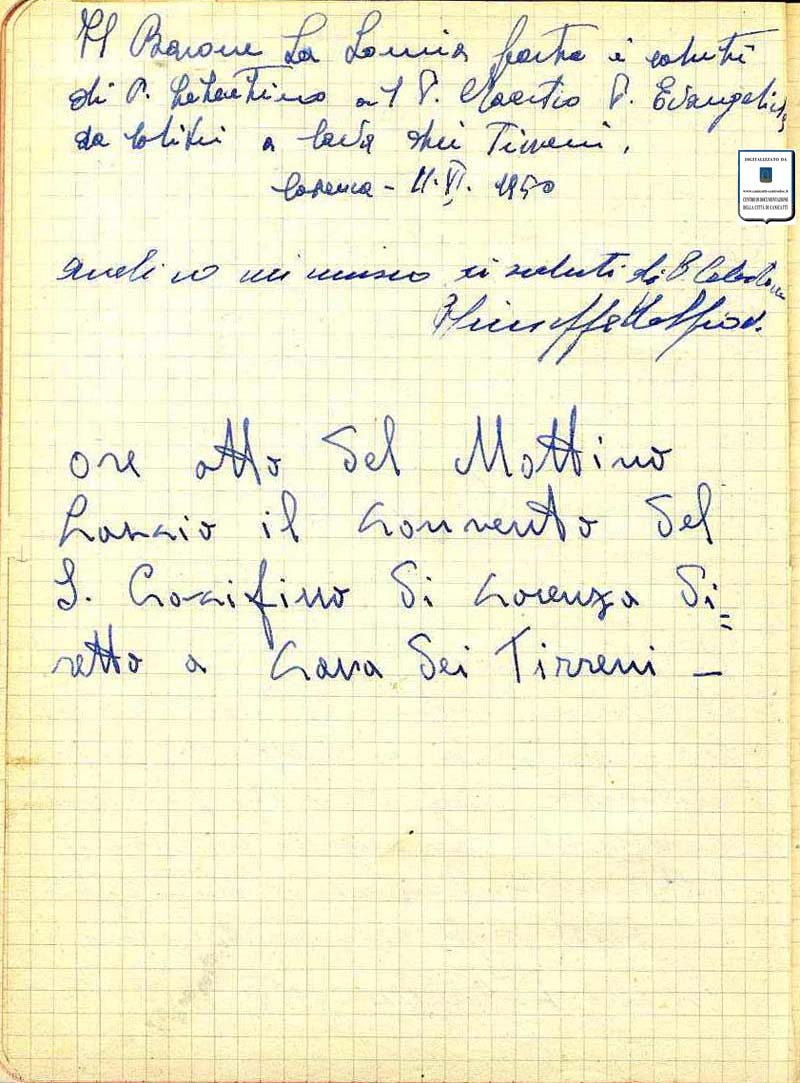 Il Barone La Lomia porta i saluti
di P. al P. Maestro P. Evangelista
da a Cava dei Tirreni,
Cosenza - 11. VI. 1950
anch'io mi unisco ai saluti di P.
ore otto del Mattino
Lascio il convento del
S. Crocifisso di Cosenza di=
retto a Cava dei Tirreni -
DIGITALIZZATO DA
www.canicatti-centrodoc.it
CENTRO DI DOCUMENTAZIONE
DELLA CITTÀ DI CANICATTÌ